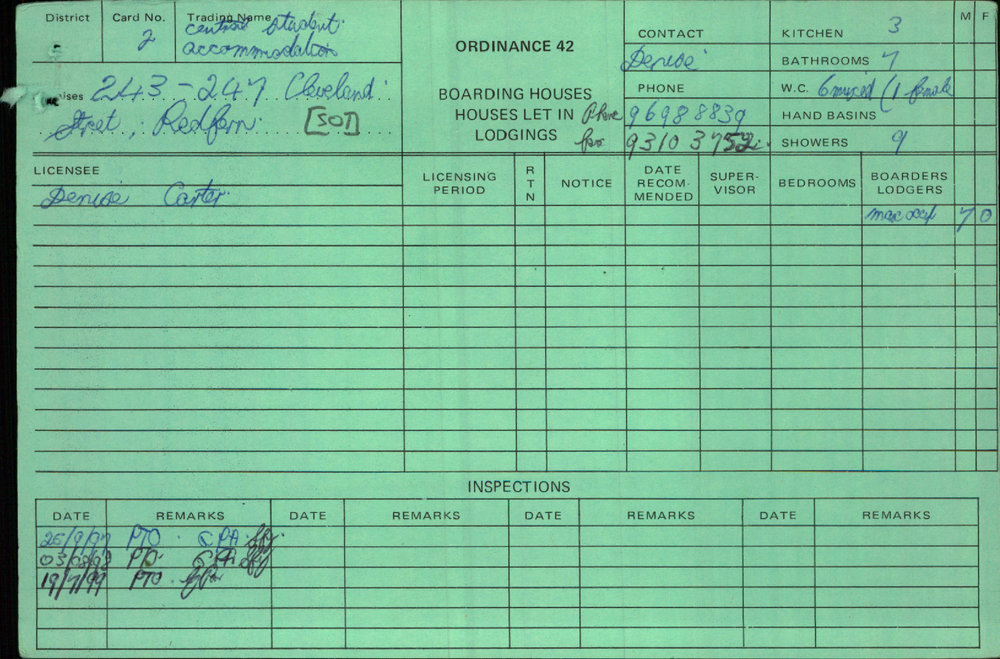 District
Card No.
2
Trading Name
central student
accommodation
243-247 Cleveland
Street, Redfern [SOT]
ORDINANCE 42
BOARDING HOUSES
HOUSES LET IN
LODGINGS
CONTACT
Denise
PHONE
Phone 96988839
fax 9310 3752
KITCHEN 3
BATHROOMS 7
W.C. 6 mixed (1 female
HAND BASINS
SHOWERS 9
M F
LICENSEE
Denise Carter
LICENSING
PERIOD
R
T
N
NOTICE
DATE
RECOM-
MENDED
SUPER-
VISOR
BEDROOMS
BOARDERS
LODGERS
70
INSPECTIONS
DATE REMARKS DATE REMARKS DATE REMARKS DATE REMARKS
25/9/97 PTO
PTO
19/7/99 PTO